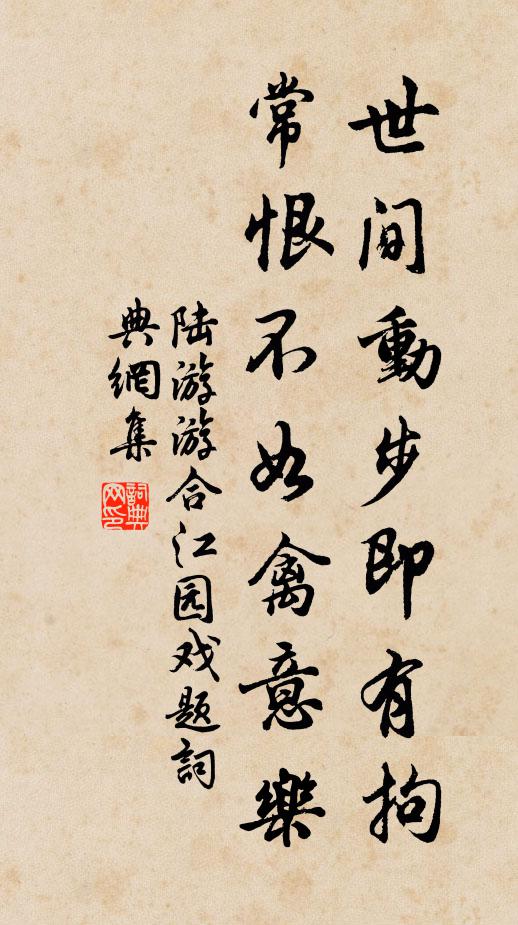 世間動步即有拘
常恨不如禽意樂
陆游游合江园戏题詞
典網集
詞典网印